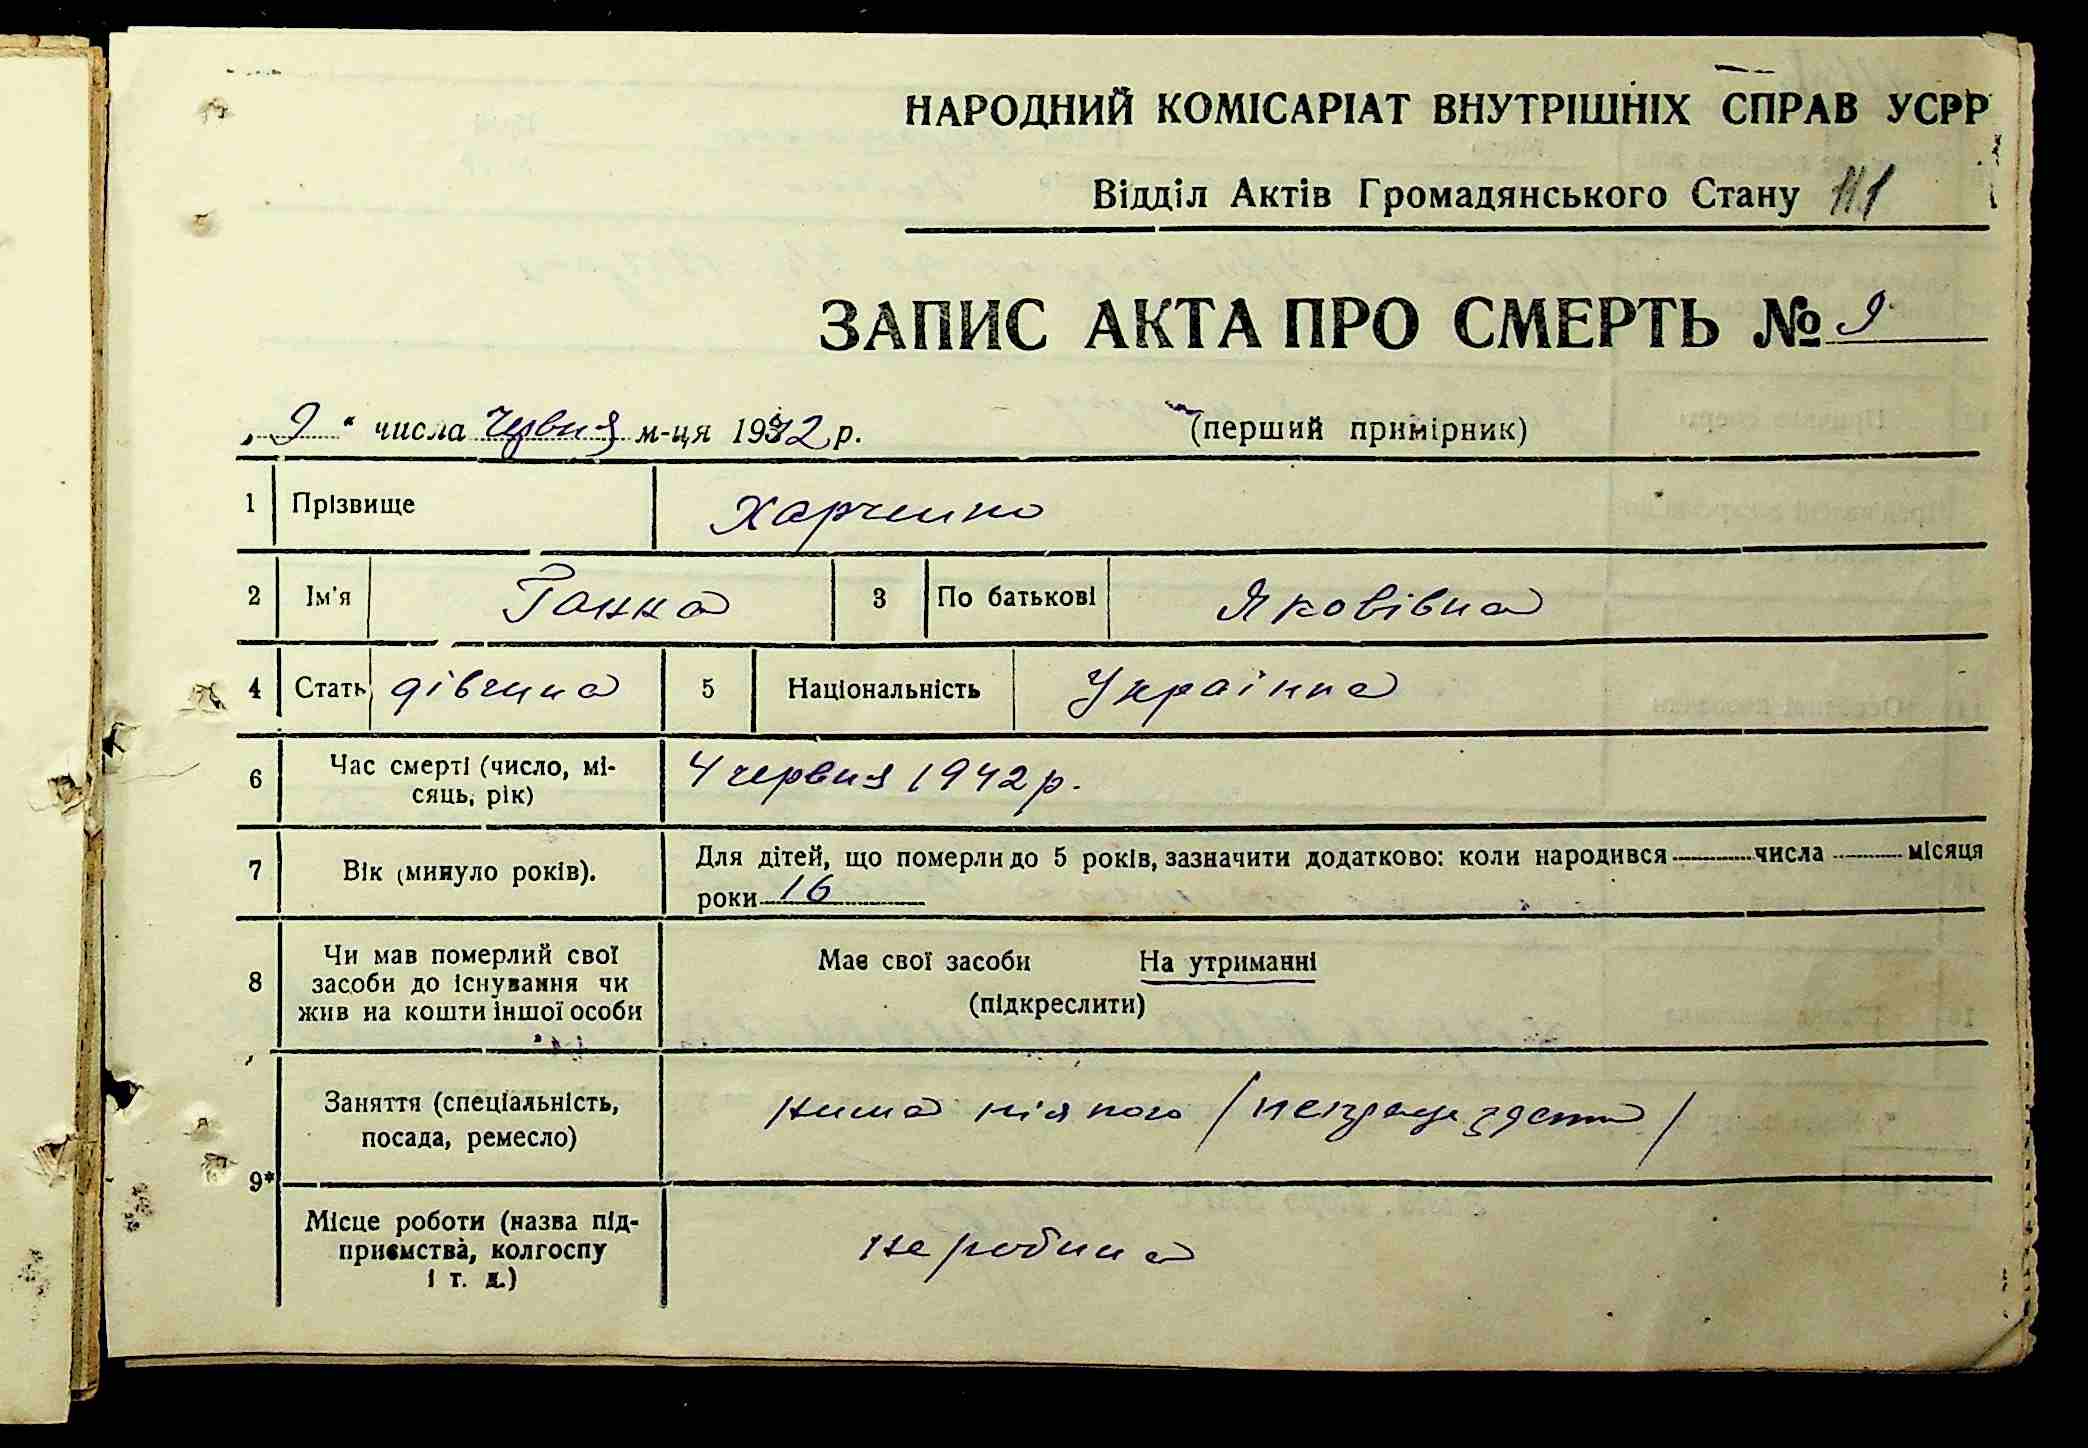 НАРОДНИЙ КОМІСАРІАТ ВНУТРІШНІХ СПРАВ УСРР
Відділ Актів Громадянського Стану 111
ЗАПИС АКТА ПРО СМЕРТЬ № 9
„ 9 “ числа червня м-ця 1942 р. (перший примірник)
1 Прізвище Харченко
2 Ім'я Ганна 3 По батькові Яковівна
4 Стать дівчина 5 Національність Українка
6 Час смерті (число, мі-
сяць, рік) 4 червня 1942 р.
7 Вік (минуло років). Для дітей, що померли до 5 років, зазначити додатково: коли народився числа місяця
роки 16
8 Чи мав померлий свої
засоби до існування чи
жив на кошти іншої особи
Має свої засоби На утриманні
(підкреслити)
Заняття (спеціальність,
посада, ремесло)
нима ніякого /непрацездатна/
9*
Місце роботи (назва під-
приємства, колгоспу
і т. д.)
не робила